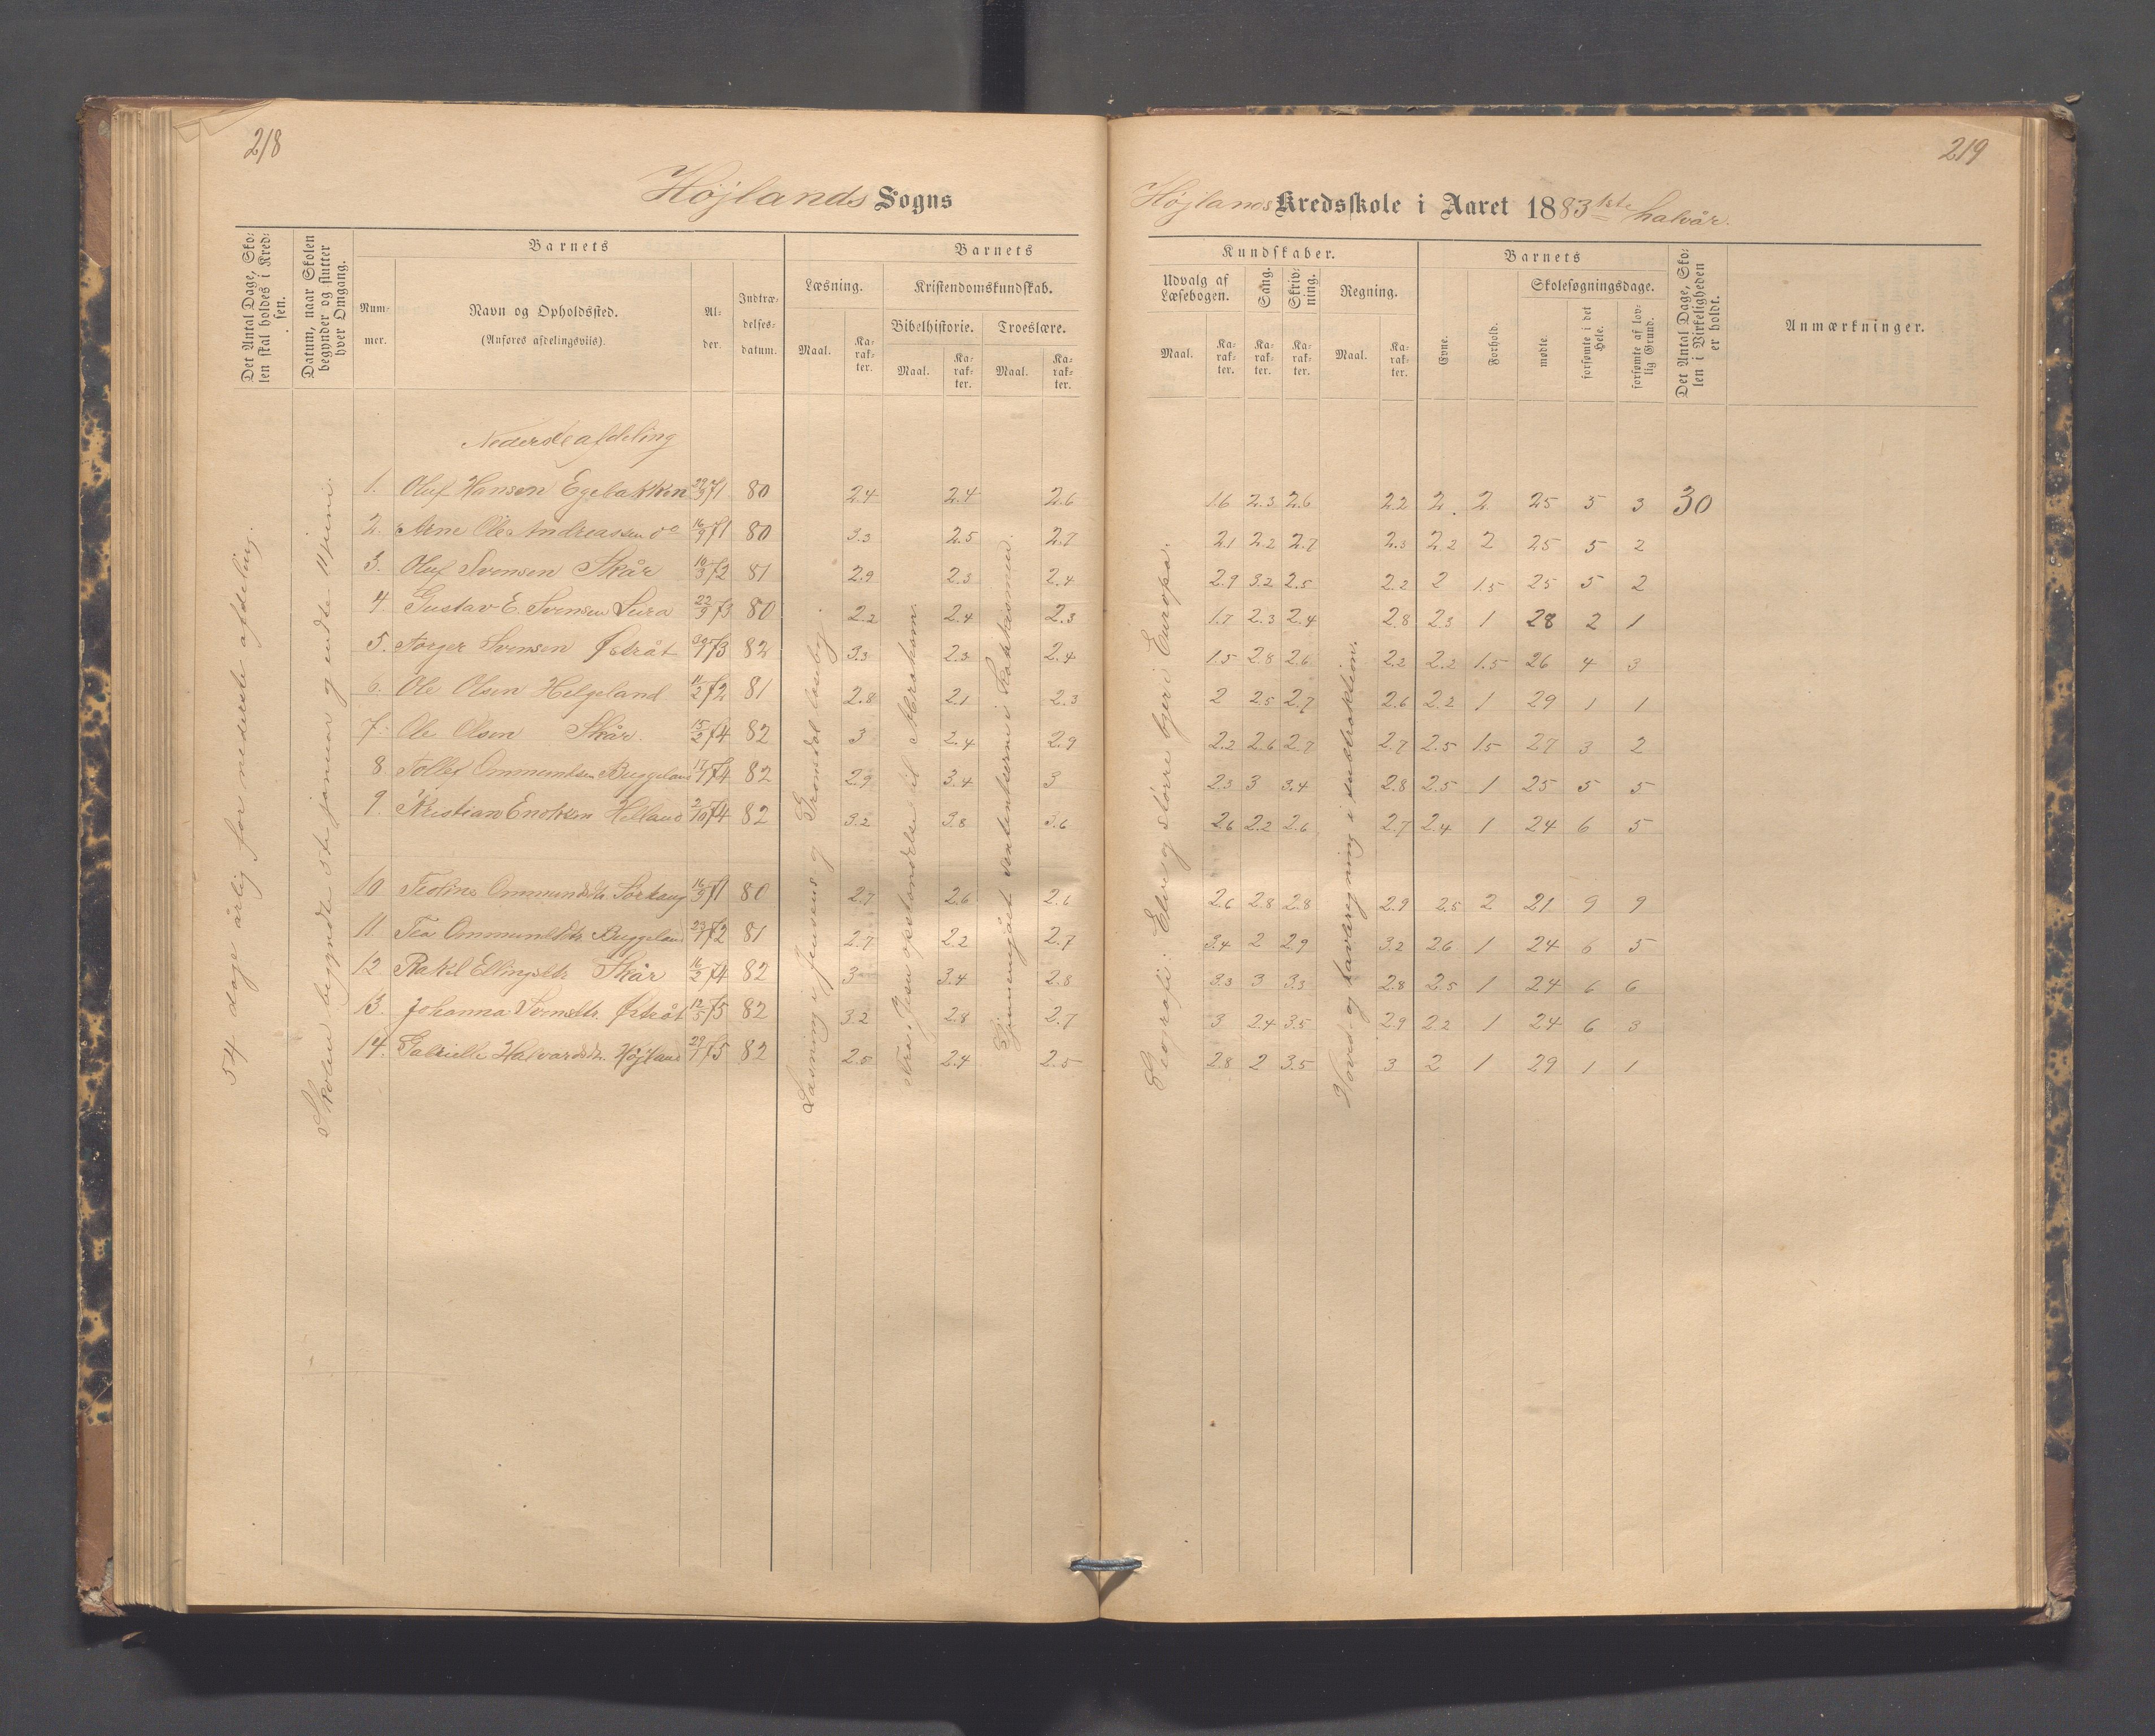 218
Højlands Sogns
Det Antal Dage, Sko-
len skal holdes i Kred-
sen.
Datum, naar Skolen
begynder og slutter
hver Omgang.
Barnets
Num-
mer.
Navn og Opholdssted.
(Anføres afdelingsviis).
Al-
der.
Indtræ-
delses-
datum.
Barnets
Læsning.
Kristendomskundskab.
Bibelhistorie. Troeslære.
Maal. Ka-
rak-
ter.
Maal. Ka-
rak-
ter.
Maal. Ka-
rak-
ter.
54 dage årlig for nederste afdeling.
Skolen begyndte 5te januar og endte 11 juni.
Nederste afdeling
1. Oluf Hansen Egebakken 71 80 2.4 2.4 2.6
2. Arne Ole Andreassen do 16/9 71 80 3.3 2.5 2.7
3. Oluf Svensen Skår 16/3 72 81 2.9 2.3 2.4
4. Gustav E. Svensen Lura 22/9 73 80 2.2 2.4 2.3
5. Torger Svensen Østråt 73 82 3.3 2.3 2.4
6. Ole Olsen Helgeland 11/2 72 81 2.8 2.1 2.3
7. Ole Olsen Skår. 15/2 74 82 3 2.4 2.9
8 Tollef Ommundsen Buggeland 17/1 74 82 2.9 3.4 3
9. Kristian Enoksen Helland 2/10 74 82 3.2 3.8 3.6
10 Teoline Ommundsdtr. 16/9 71 80 2.7 2.6 2.6
11. Tea Ommundsdtr. Buggeland 23/1 72 81 2.7 2.2 2.7
12 Rakel Ellingsdtr Skår 16/2 74 82 3 3.4 2.8
13. Johanna Svensdtr. Østråt 12/5 75 82 3.2 2.8 2.7
14. Gabrielle Halvardsdtr. Højland 29/1 75 82 2.5 2.4 2.5
Læsning i Jensens og
Fra Jesu opstandelse til
Gjennemgået
219
Højlands Kredsskole i Aaret 1883 1ste halvår.
Kundskaber.
Udvalg af
Læsebogen.
Sang.
Skriv-
ning.
Regning.
Maal. Ka-
rak-
ter.
Ka-
rak-
ter.
Ka-
rak-
ter.
Maal. Ka-
rak-
ter.
Barnets
Evne.
Forhold.
Skolesøgningsdage.
mødte
forsømte i det
Hele.
forsømte af lov-
lig Grund.
Det Antal Dage, Sko-
len i Virkeligheden
er holdt.
Anmærkninger.
1.6 2.3 2.6 2.2 2. 2 25 5 3 30
2.1 2.2 2.7 2.3 2.2 2 25 5 2
2.9 3.2 2.5 2.2 2 1.5 25 5 2
1.7 2.3 2.4 2.8 2.3 1 28 2 1
1.5 2.8 2.6 2.2 2.2 1.5 26 4 3
2 2.5 2.7 2.6 2.2 1 29 1 1
2.2 2.6 2.7 2.7 2.5 1.5 27 3 2
2.3 3 3.4 2.8 2.5 1 25 5 5
2.6 2.2 2.6 2.7 2.4 1 24 6 5
2.6 2.8 2.8 2.9 2.5 2 21 9 9
3.4 2 2.9 3.2 2.6 1 24 6 5
3.3 3 3.3 2.8 2.5 1 24 6 6
3 2.4 3.5 2.9 2.2 1 24 6 3
2.8 2 3.5 3 2 1 29 1 1
Geografi: Elve og større byer i Europa.
Hoved- og tavleregning i subtraktion.